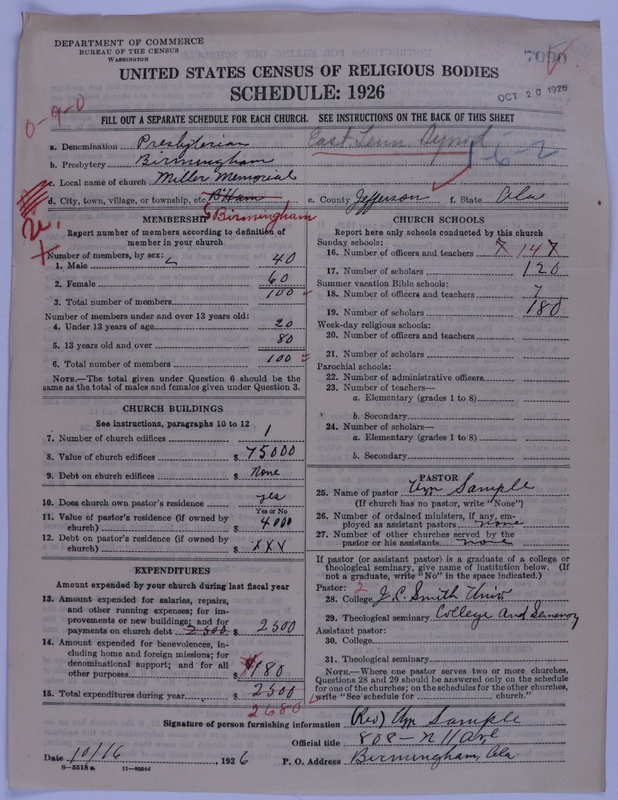 DEPARTMENT OF COMMERCE
BUREAU OF THE CENSUS
WASHINGTON
7090
UNITED STATES CENSUS OF RELIGIOUS BODIES
SCHEDULE: 1926
OCT 20 1926
0-9-0
FILL OUT A SEPARATE SCHEDULE FOR EACH CHURCH. SEE INSTRUCTIONS ON THE BACK OF THIS SHEET
a. Denomination Presbyterian East Tenn. Synod
b. Presbytery Birmingham 16-2
c. Local name of church Miller Memorial
d. City, town, village, or township, etc. B'Ham e. County Jefferson f. State Ala
Birmingham
MEMBERSHIP
Report number of members according to definition of member in your church
Number of members, by sex:
1. Male 40
2. Female 60
3. Total number of members 100
Number of members under and over 13 years old:
4. Under 13 years of age 20
5. 13 years old and over 80
6. Total number of members 100
NOTE.—The total given under Question 6 should be the
same as the total of males and females given under Question 3.
CHURCH BUILDINGS
See instructions, paragraphs 10 to 12
7. Number of church edifices 1
8. Value of church edifices $ 75000
9. Debt on church edifices $ None
10. Does church own pastor's residence yes
Yes or No
11. Value of pastor's residence (if owned by
church) $ 4000
12. Debt on pastor's residence (if owned by
church) $ XXX
EXPENDITURES
Amount expended by your church during last fiscal year
13. Amount expended for salaries, repairs,
and other running expenses; for im-
provements or new buildings; and for
payments on church debt 2500 $ 2500
14. Amount expended for benevolences, in-
cluding home and foreign missions; for
denominational support; and for all
other purposes $ 180
15. Total expenditures during year $ 2500
2680
CHURCH SCHOOLS
Report here only schools conducted by this church
Sunday schools:
16. Number of officers and teachers 7 14 7
17. Number of scholars 120
Summer vacation Bible schools:
18. Number of officers and teachers 7
19. Number of scholars 180
Week-day religious schools:
20. Number of officers and teachers
21. Number of scholars
Parochial schools:
22. Number of administrative officers
23. Number of teachers—
a. Elementary (grades 1 to 8)
b. Secondary
24. Number of scholars—
a. Elementary (grades 1 to 8)
b. Secondary
PASTOR
25. Name of pastor Wm Sample
(If church has no pastor, write "None")
26. Number of ordained ministers, if any, em-
ployed as assistant pastors none
27. Number of other churches served by the
pastor or his assistants none
If pastor (or assistant pastor) is a graduate of a college or
theological seminary, give name of institution below. (If
not a graduate, write "No" in the space indicated.)
Pastor: 2
28. College J. C. Smith Univ
29. Theological seminary College and Seminary
Assistant pastor:
30. College
31. Theological seminary
NOTE.—Where one pastor serves two or more churches,
Questions 28 and 29 should be answered only on the schedule
for one of the churches; on the schedules for the other churches,
write "See schedule for church."
Signature of person furnishing information (Rev) Wm Sample
Official title 808 - N 11 Ave
Date 10/16, 1926 P. O. Address Birmingham, Ala
8-5518 a